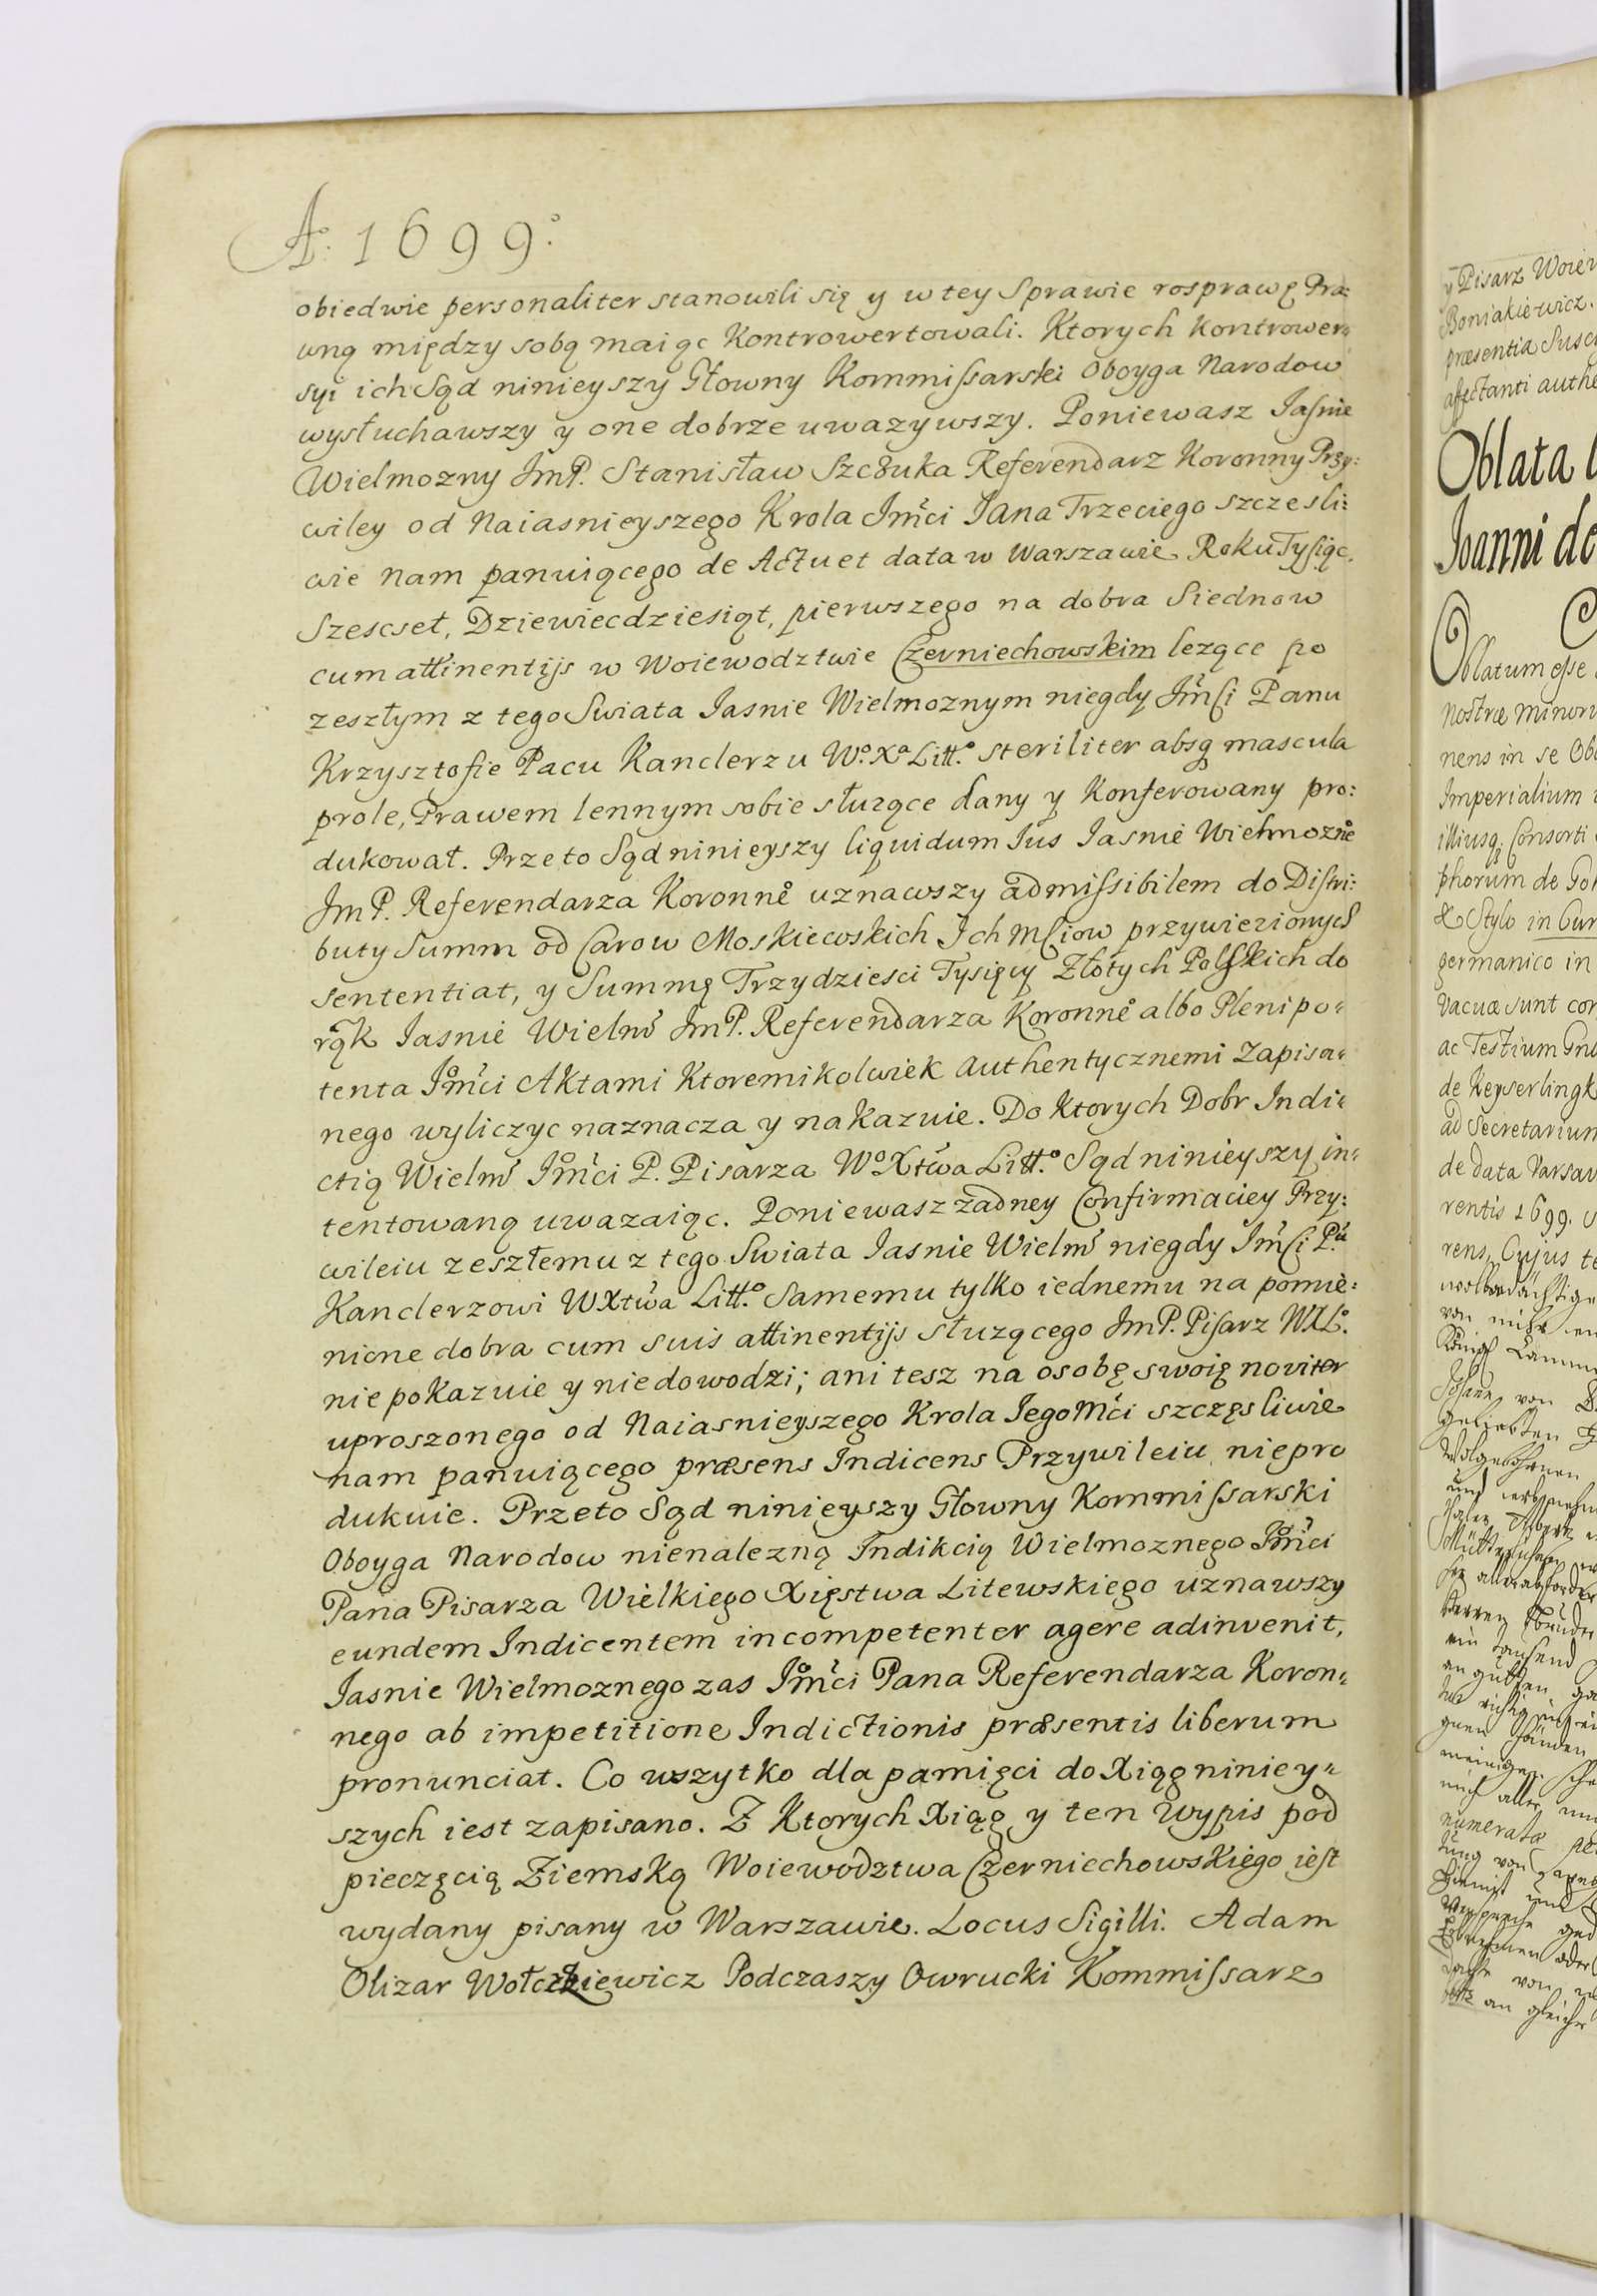 Aº: 1699º.
obiedwie personaliter stanowili się y w tey Sprawie rosprawę Pra-
wną między sobą maiąc Kontrowertowali. Ktorych kontrower-
syi ich Sąd ninieyszy Głowny Kommissarski Oboyga Narodow
wysłuchawszy y one dobrze uwazywszy. Poniewasz Jasnie
Wielmozny JmP. Stanisław Szczuka Referendarz Koronny Przy:
wiley od Naiasnieyszego Krola Jm̃ci Jana Trzeciego szczesli:
wie nam panuiącego de Actu et data w Warszawie Roku Tysiąc.
Szescset, Dziewiecdziesiąt, pierwszego na dobra Siednow
cum attinentijs w Woiewodztwie Czerniechowskim lezące po
zeszłym z tego Swiata Jasnie Wielmoznym niegdy Jm̃Ci Panu
Krzysztofie Pacu Kanclerzu Wº. Xª Litt.º steriliter absq mascula
prole, Prawem lennym sobie słuzące dany y Konferowany pro:
dukował. Przeto Sąd ninieyszy liquidum Jus Jasnie Wielmozne̊
JmP. Referendarza Koronne̊ uznawszy admissibilem do Distri:
buty Summ od Carow Moskiewskich Ich MCiow przywiezionych
sententiat, y Summę Trzydziesci Tysięcy Złotych Polskich do
rąk Jasnie Wielmº JmP. Referendarza Koronne̊ albo Plenipo-
tenta Jm̊̃ci Aktami Ktoremikolwiek Authentycznemi Zapisa-
nego wyliczyc naznacza y nakazuie. Do Ktorych Dobr Indi-
ctią Wielmº Jm̊̃ci P. Pisarza Wº Xtwa Litt.º Sąd ninieyszy in-
tentowaną uwazaiąc. Poniewasz żadney Confirmaciey Przy:
wileiu zeszłemu z tego Swiata Jasnie Wielmº niegdy Jm̃Ci P.ᵘ
Kanclerzowi WXtwa Litt.º Samemu tylko iednemu na pomie:
nione dobra cum suis attinentijs słuzącego JmP. Pisarz WXLº.
nie pokazuie y niedowodzi; ani tesz na osobę swoię noviter
uproszonego od Naiasnieyszego Krola JegoMci szczęsliwie
nam panuiącego præsens Indicens Przywileiu, niepro
dukuie. Przeto Sąd ninieyszy Głowny Kommissarski
Oboyga Narodow nienalezną Indikcią Wielmoznego Jm̊̃ci
Pana Pisarza Wielkiego Xięstwa Litewskiego uznawszy
eundem Indicentem incompetenter agere adinvenit,
Jasnie Wielmoznego zas Jm̊̃ci Pana Referendarza Koron-
nego ab impetitione Indictionis præsentis liberum
pronunciat. Co wszytko dla pamięci do Xiąg niniey-
szych iest zapisano. Z Ktorych Xiąg y ten Wypis pod
pieczęcią Ziemską Woiewodztwa Czerniechowskiego iest
wydany pisany w Warszawie. Locus Sigilli. Adam
Olizar Wołczkiewicz Podczaszy Owrucki Kommissarz
y Pisarz Woiew
Boniakiewicz.
præsentia susc
affectanti authe
Oblata
Joanni de
Oblatum esse
Nostræ Minori
nens in se Ob
Imperialium
illiusq Consorti
phorum de Gol
& Stylo in Cur
germanico in
Vacuæ sunt cor
ac Testium
de Keyserlingk
ad Secretarium
de data Varsav
rentis 1699.
rens, Cujus te
von
von
ein tausend
numeratæ
tung von
an gleicher